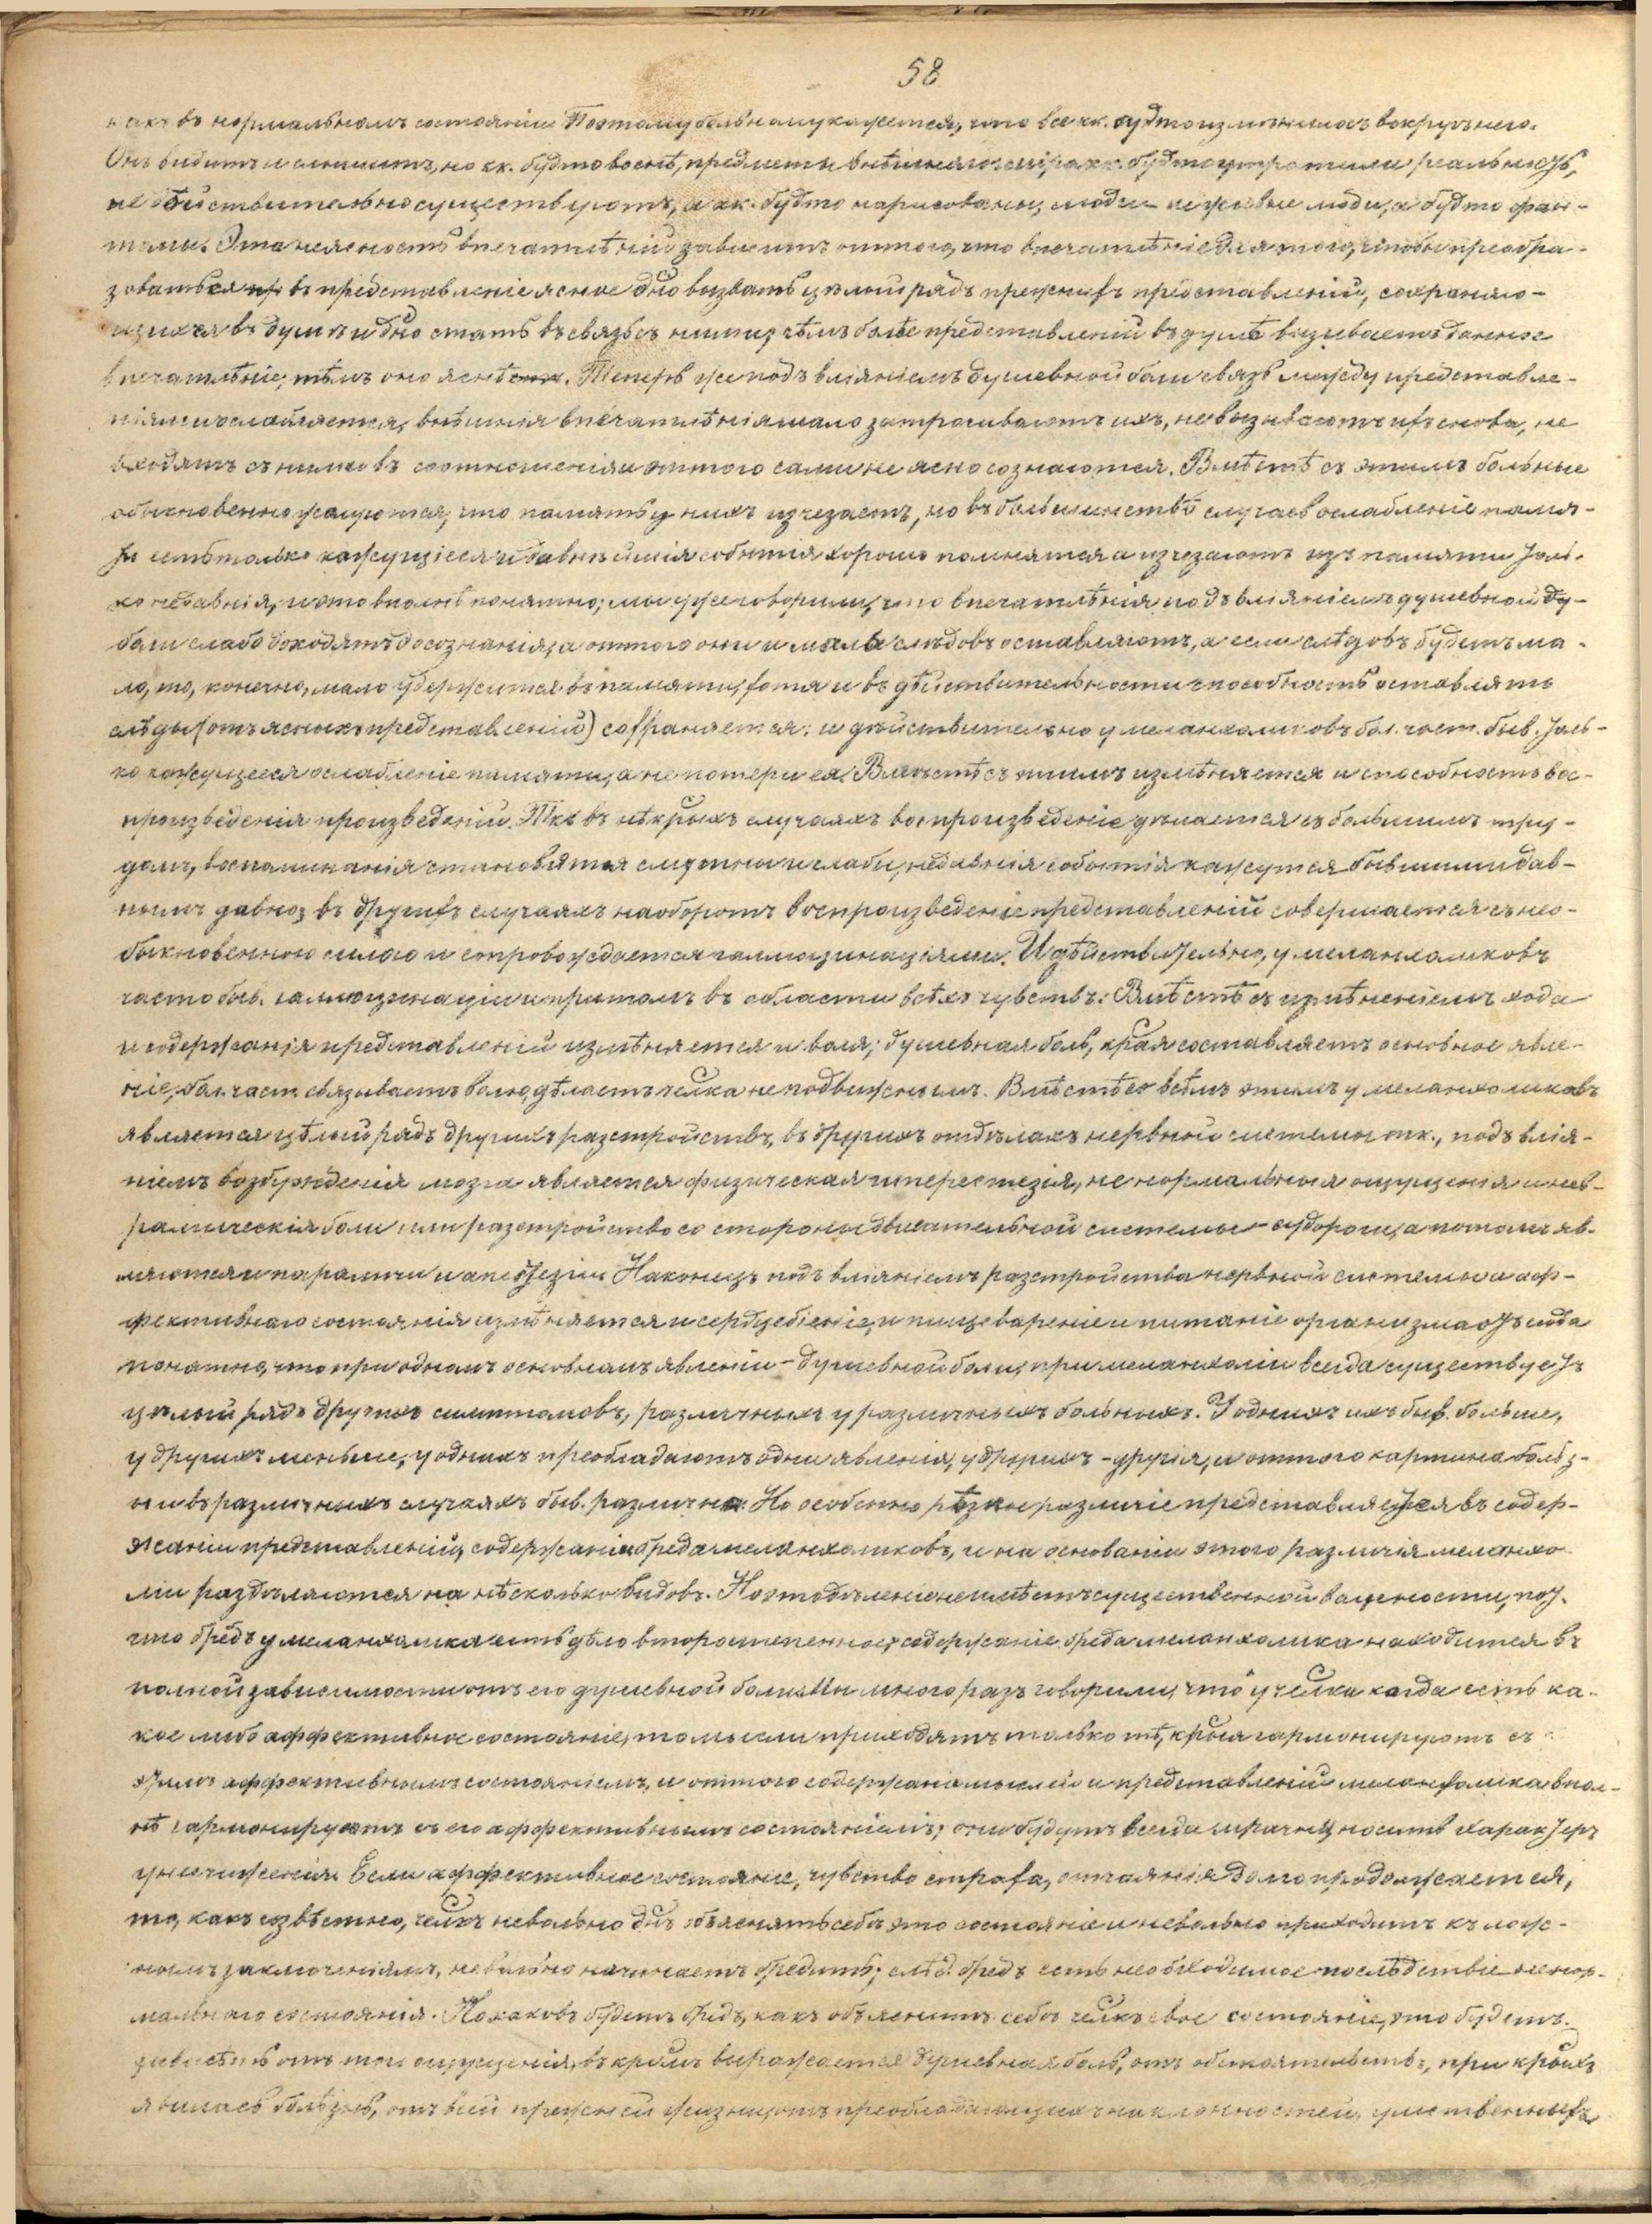 58
какъ въ нормальномъ состояніи. Поэтому больному кажется, что все кк. будто измѣнилось вокругъ него.
Онъ видитъ и слышитъ, но кк. будто во снѣ, предметы внѣшняго міра кк. будто утратили реальность,
не дѣйствительно существуютъ, а кк. будто нарисованы, люди – не живые люди, а будто фан-
томы. Эта неясность впечатлѣній зависитъ оттого, что впечатлѣніе для того, чтобы преобра-
зоваться въ представленіе ясное дно вызвать цѣлый рядъ прежнихъ представленій, сохраняю-
щихся въ душѣ и дно стать въ связь съ ними; чѣмъ болѣе представленій въ душѣ вызываетъ данное
впечатлѣніе, тѣмъ оно яснѣе. Теперь же подъ вліяніемъ душевной боли связь между представле-
ніями ослабляется, внѣшнія впечатлѣнія мало затрогиваютъ ихъ, не вызываютъ ихъ снова, не
входятъ съ ними въ соотношенія и оттого сами не ясно сознаются. Вмѣстѣ съ этимъ больные
обыкновенно жалуются, что память у нихъ изчезаетъ, но въ большинствѣ случаевъ ослабленіе памя-
ти есть только кажущееся и давнѣйшія событія хорошо помнятся а изчезаютъ изъ памяти толь-
ко недавнія, и это вполнѣ понятно; мы уже говорили, что впечатлѣнія подъ вліяніемъ душевной
боли слабо доходятъ до сознанія, а оттого они и мало слѣдовъ оставляютъ, а если слѣдовъ будетъ ма-
ло, то, конечно, мало удержится въ памяти, хотя и въ дѣйствительности способность оставлять
слѣды (отъ ясныхъ представленій) сохраняется; и дѣйствительно у меланхоликовъ бол. част. быв. толь-
ко кажущееся ослабленіе памяти, а не потеря ея. Вмѣстѣ съ этимъ измѣняется и способность вос-
произведенія произведеній. Ткъ въ нѣкрыхъ случаяхъ воспроизведеніе дѣлается съ большимъ тру-
домъ, воспоминанія становятся смутны и слабы, недавнія событія кажутся бывшими дав-
нымъ давно; въ другихъ случаяхъ наоборотъ воспроизведеніе представленій совершается съ нео-
быкновенною силою и сопровождается галлюцинаціями. И дѣйствительно, у меланхоликовъ
часто быв. галлюцинаціи и притомъ въ области всѣхъ чувствъ. Вмѣстѣ съ измѣненіемъ хода
и содержанія представленій измѣняется и воля; душевная боль, края составляетъ основное явле-
ніе, бол. част. связываетъ волю, дѣлаетъ челка неподвижнымъ. Вмѣстѣ со всѣмъ этимъ у меланхоликовъ
является цѣлый рядъ другихъ разстройствъ, въ другихъ отдѣлахъ нервной системы тк., подъ влія-
ніемъ возбужденія мозга является физическая гиперестезія, не нормальныя ощущенія и нев-
ралгическія боли, или разстройство со стороны двигательной системы – судороги, а потомъ яв-
ляются и параличи и анестезіи. Наконецъ подъ вліяніемъ разстройства нервной системы и аф-
фективнаго состоянія измѣняется и сердцебіеніе, и пищевареніе и питаніе организма отъ сюда
понятно, что при одномъ основномъ явленіи – душевной боли, при меланхоліи всегда существуетъ
цѣлый рядъ другихъ симптомовъ, различныхъ у различныхъ больныхъ. У однихъ ихъ быв. больше,
у другихъ меньше, у однихъ преобладаютъ одни явленія, у другихъ – другія, и оттого картина болѣз-
ни въ различныхъ случаяхъ быв. различна. Но особенно рѣзкое различіе представляется въ содер-
жаніи представленій, содержаніи бреда меланхоликовъ, и на основаніи этого различія меланхо-
ліи раздѣляются на нѣсколько видовъ. Но это дѣленіе не имѣетъ существенной важности, пот.
что бредъ у меланхолика есть дѣло второстепенное; содержаніе бреда меланхолика находится въ
полной зависимости отъ его душевной боли. Мы много разъ говорили, что у челка когда есть ка-
кое либо аффективное состояніе, то мысли приходятъ только тѣ, крыя гармонируютъ съ
этимъ аффективнымъ состояніемъ, и оттого содержаніе мыслей и представленій меланхолика впол-
нѣ гармонируетъ съ его аффективнымъ состояніемъ; они будутъ всегда мрачны, носить характеръ
уничиженія. Если аффективное состояніе, чувство страха, отчаянія долго продолжается,
то, какъ извѣстно, челкъ невольно днъ объяснять себѣ это состояніе и невольно приходитъ къ лож-
нымъ заключеніямъ, невольно начинаетъ бредить; слѣд. бредъ есть необходимое послѣдствіе ненор-
мальнаго состоянія. Но каковъ будетъ бредъ, какъ объяснитъ себѣ челкъ свое состояніе, это будетъ
зависѣть отъ того ощущенія, въ кромъ выражается душевная боль, отъ обстоятельствъ, при крыхъ
явилась болѣзнь, отъ всей прежней жизни, отъ преобладающихъ наклонностей, умственныхъ